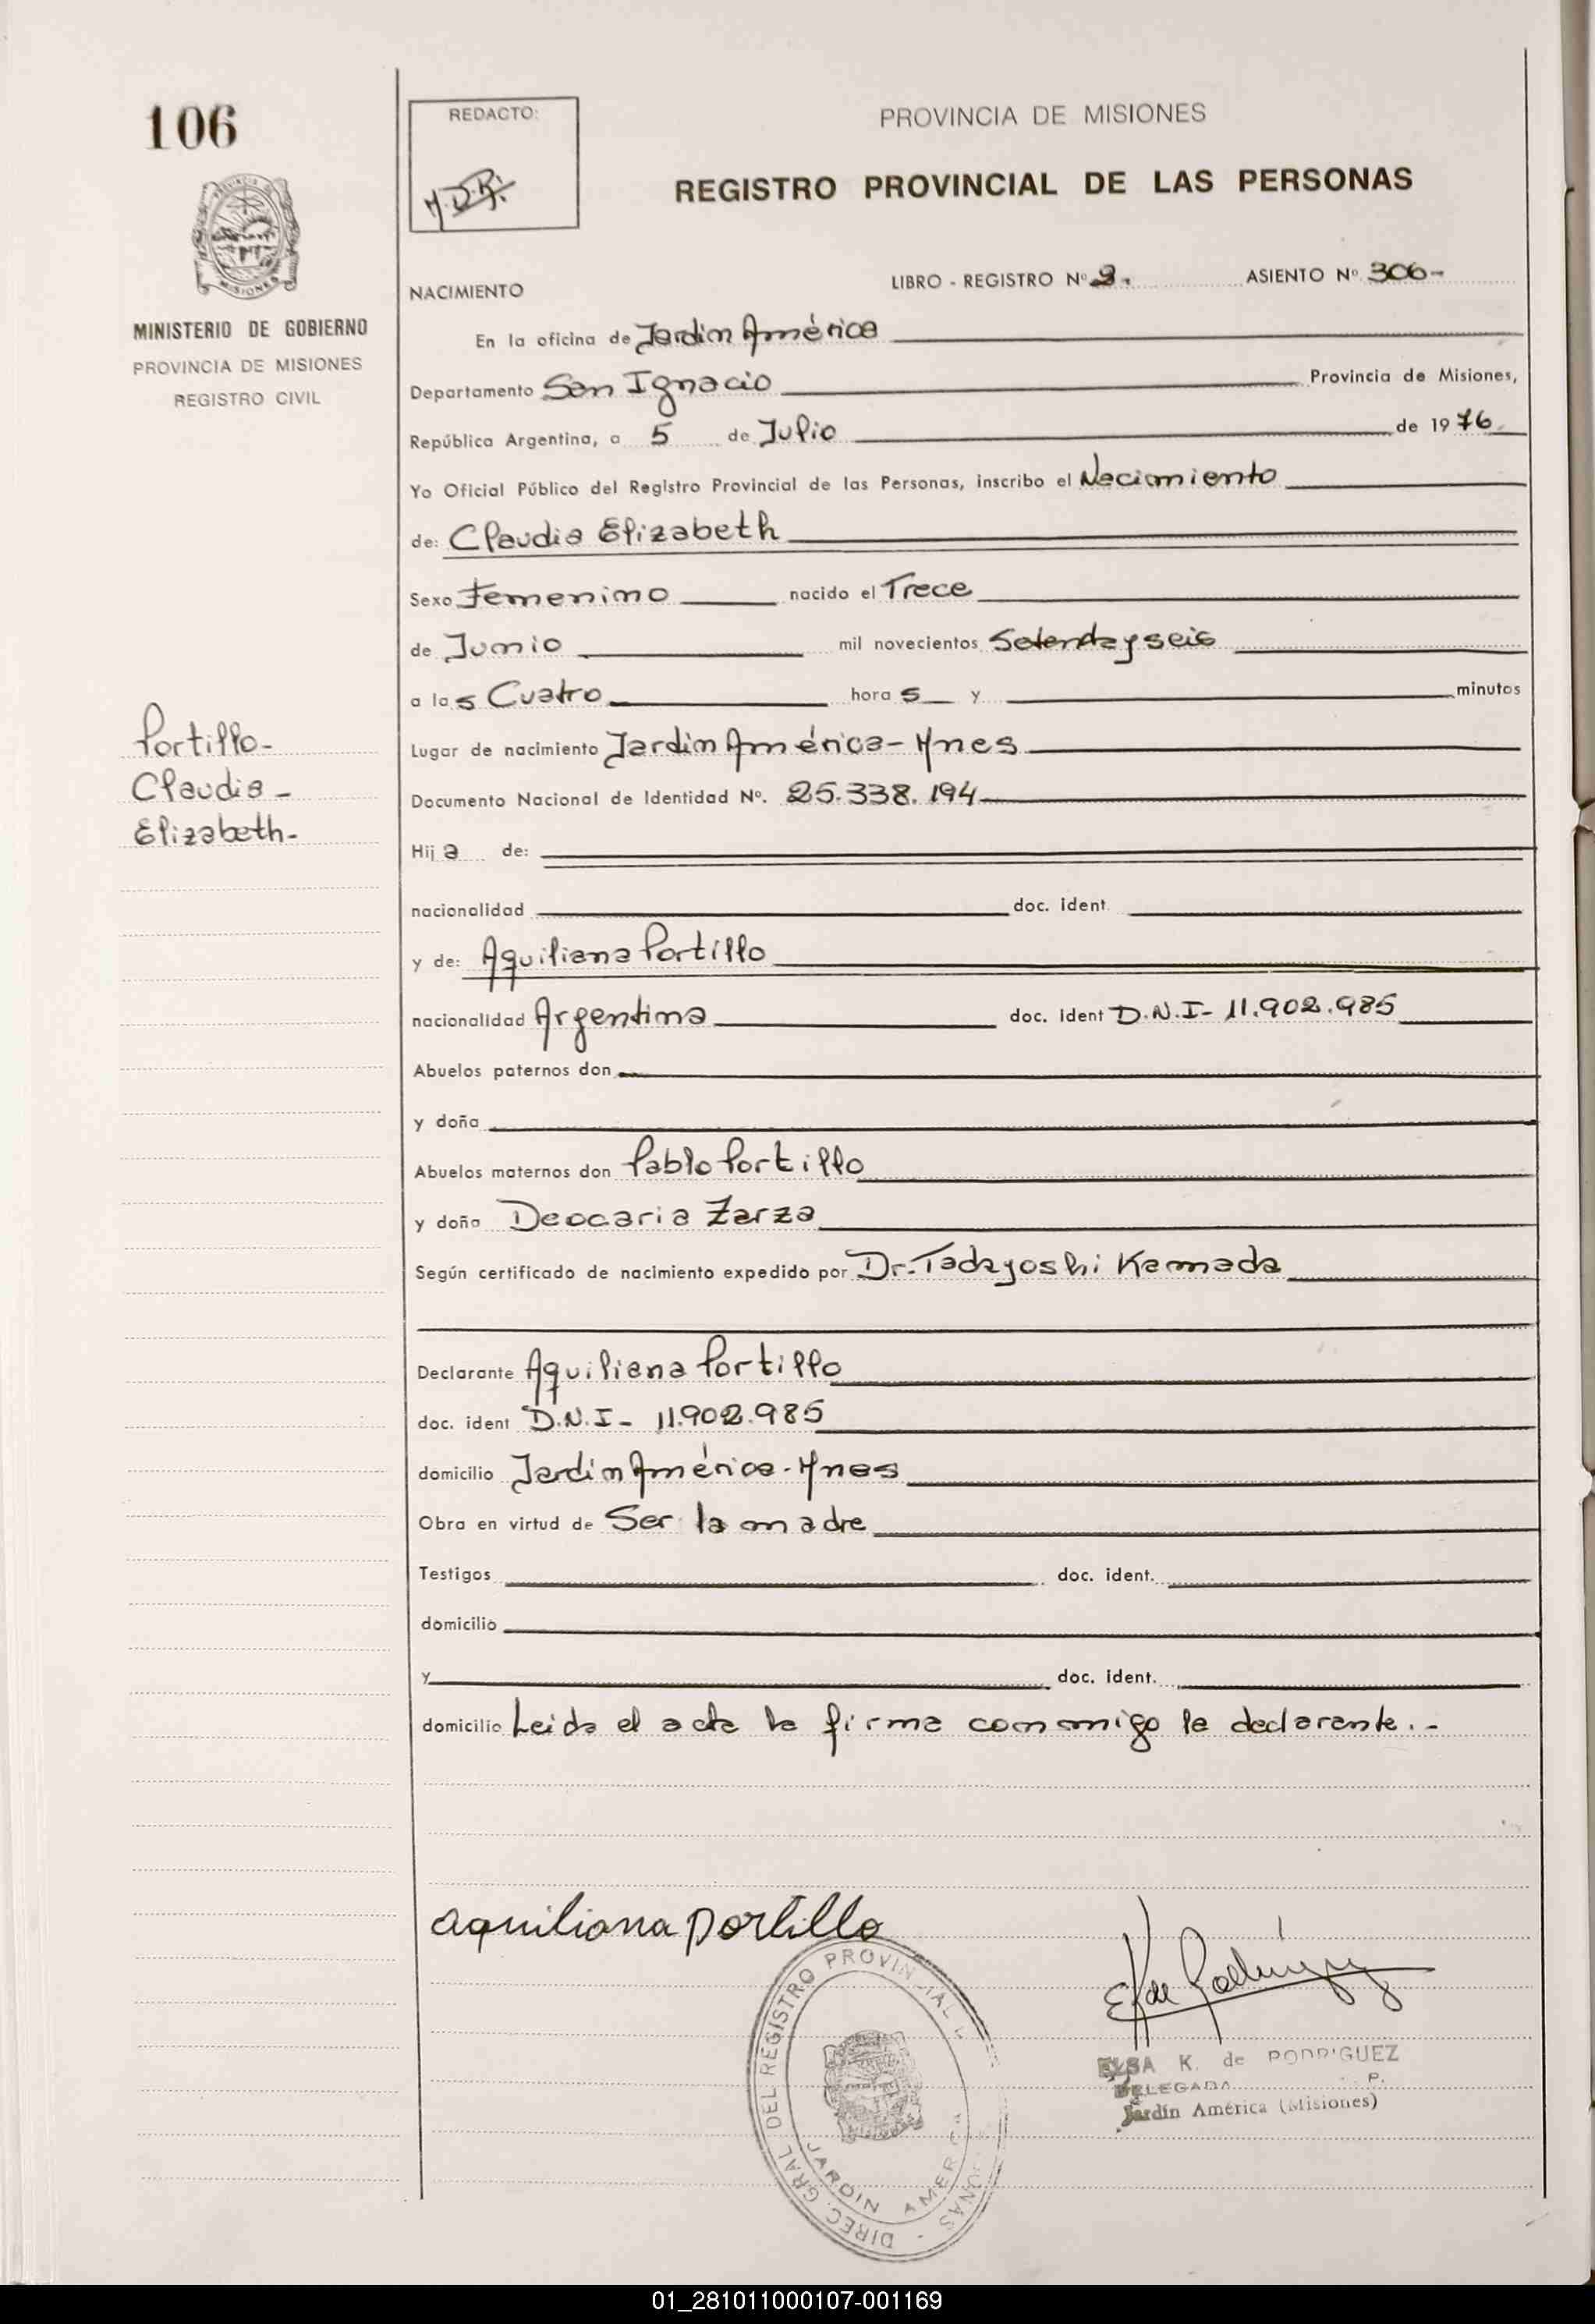 106
MINISTERIO DE GOBIERNO
PROVINCIA DE MISIONES
REGISTRO CIVIL
Portillo-
Claudia-
Elizabeth-
REDACTO:
PROVINCIA DE MISIONES
REGISTRO PROVINCIAL DE LAS PERSONAS
NACIMIENTO LIBRO - REGISTRO Nº ASIENTO Nº 306-
En la oficina de Jardín América
Departamento San Ignacio Provincia de Misiones,
República Argentina, a 5 de Julio de 1976
Yo Oficial Público del Registro Provincial de las Personas, inscribo el Nacimiento
de: Claudia Elizabeth
Sexo Femenino nacido el Trece
de Junio mil novecientos Setenta y seis
a las Cuatro horas y minutos
Lugar de nacimiento Jardín América-Mnes
Documento Nacional de Identidad Nº. 25.338.194
Hija de:
nacionalidad doc. ident.
y de: Aquiliana Portillo
nacionalidad Argentina doc. ident D.N.I- 11.902.985
Abuelos paternos don
y doña
Abuelos maternos don Pablo Portillo
y doña Deocaria Zarza
Según certificado de nacimiento expedido por Dr. Tadayoshi Kamada
Declarante Aquiliana Portillo
doc. ident D.N.I- 11.902.985
domicilio Jardín América-Mnes
Obra en virtud de Ser la madre
Testigos doc. ident.
domicilio
y doc. ident.
domicilio Leida el acta la firma conmigo la declarante.-
aquiliana portillo
DIREC. GRAL DEL REGISTRO PROVINCIAL
JARDIN AMERICA
ELSA K. de RODRIGUEZ
DELEGADA
Jardín América (Misiones)
01_281011000107-001169